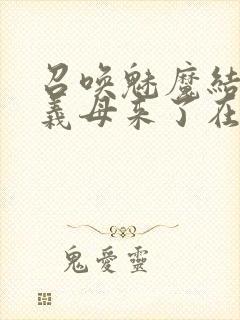 召唤魅魔结
义母来了在
鬼愛靈